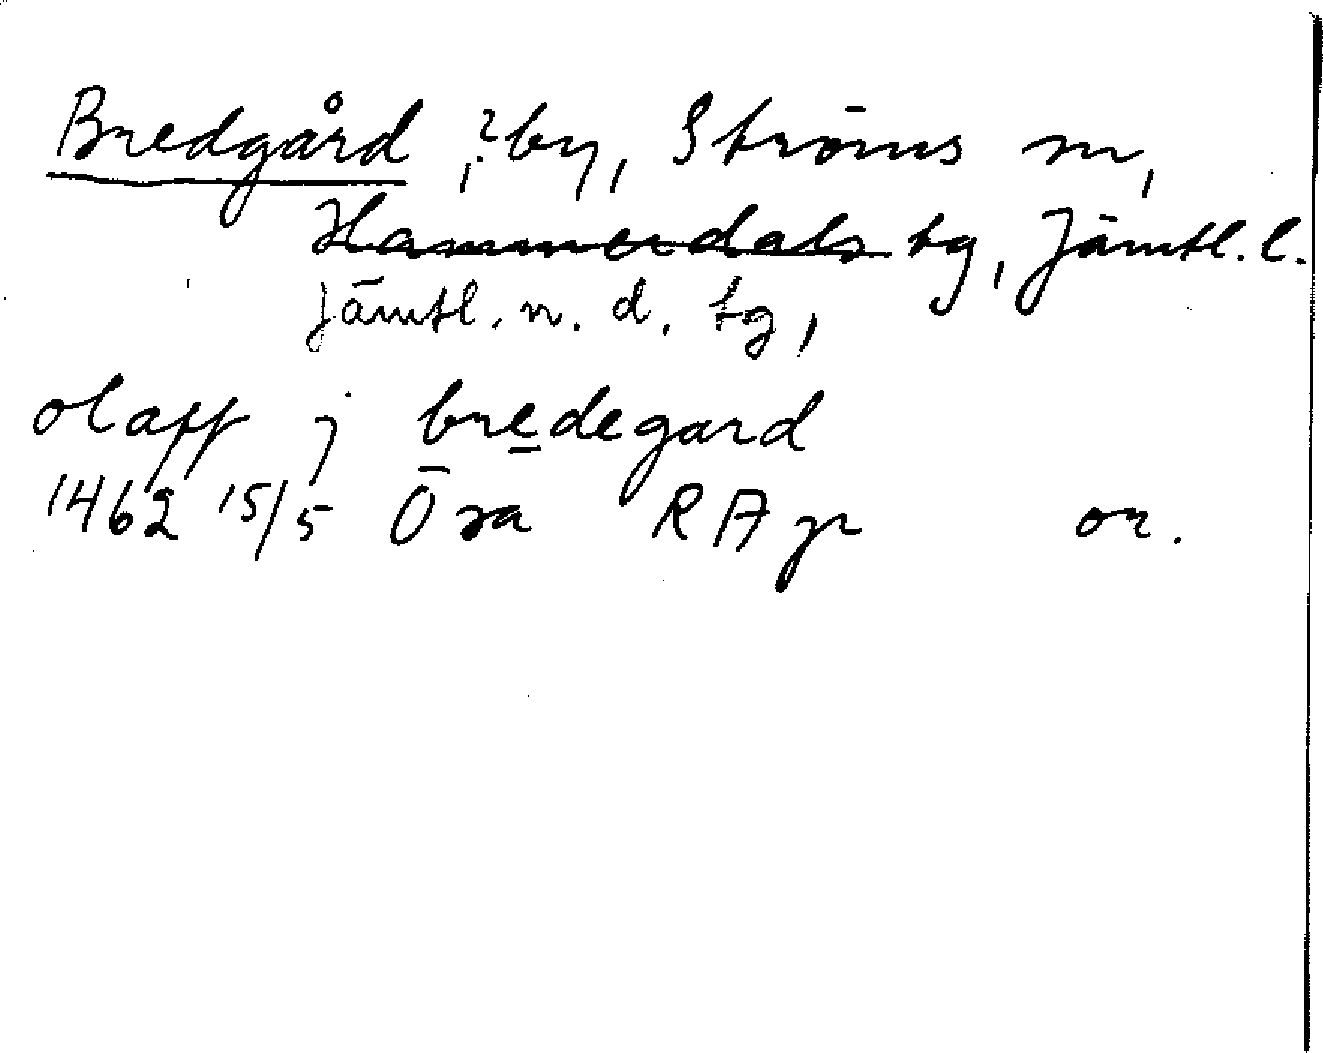 Bredgård, ?by, Ströms sn,
Hammerdals tg, Jämtl. l.
Jämtl. n. d. tg,
olaff j bredegard
1462 15/5 Ö ra RAp or.